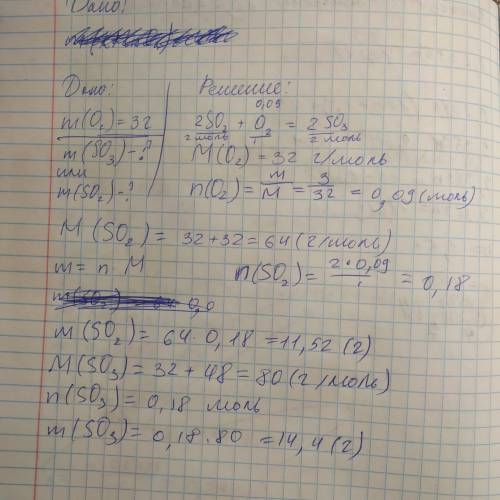 Дано:
Дано:
Решение:
m(O₂)=3г
m(SO₃)-?
или
m(SO₂)-?
0,09
2SO₂ + O₂ = 2SO₃
2 моль 1 2 моль
M(O₂) = 32 г/моль
n(O₂) = m/M = 3/32 = 0,09 (моль)
M(SO₂) = 32+32 = 64 (г/моль)
m = n · M
n(SO₂) = 2·0,09/1 = 0,18
m(SO₂) = 64 · 0,18 = 11,52 (г)
M(SO₃) = 32 + 48 = 80 (г/моль)
n(SO₃) = 0,18 моль
m(SO₃) = 0,18 · 80 = 14,4 (г)